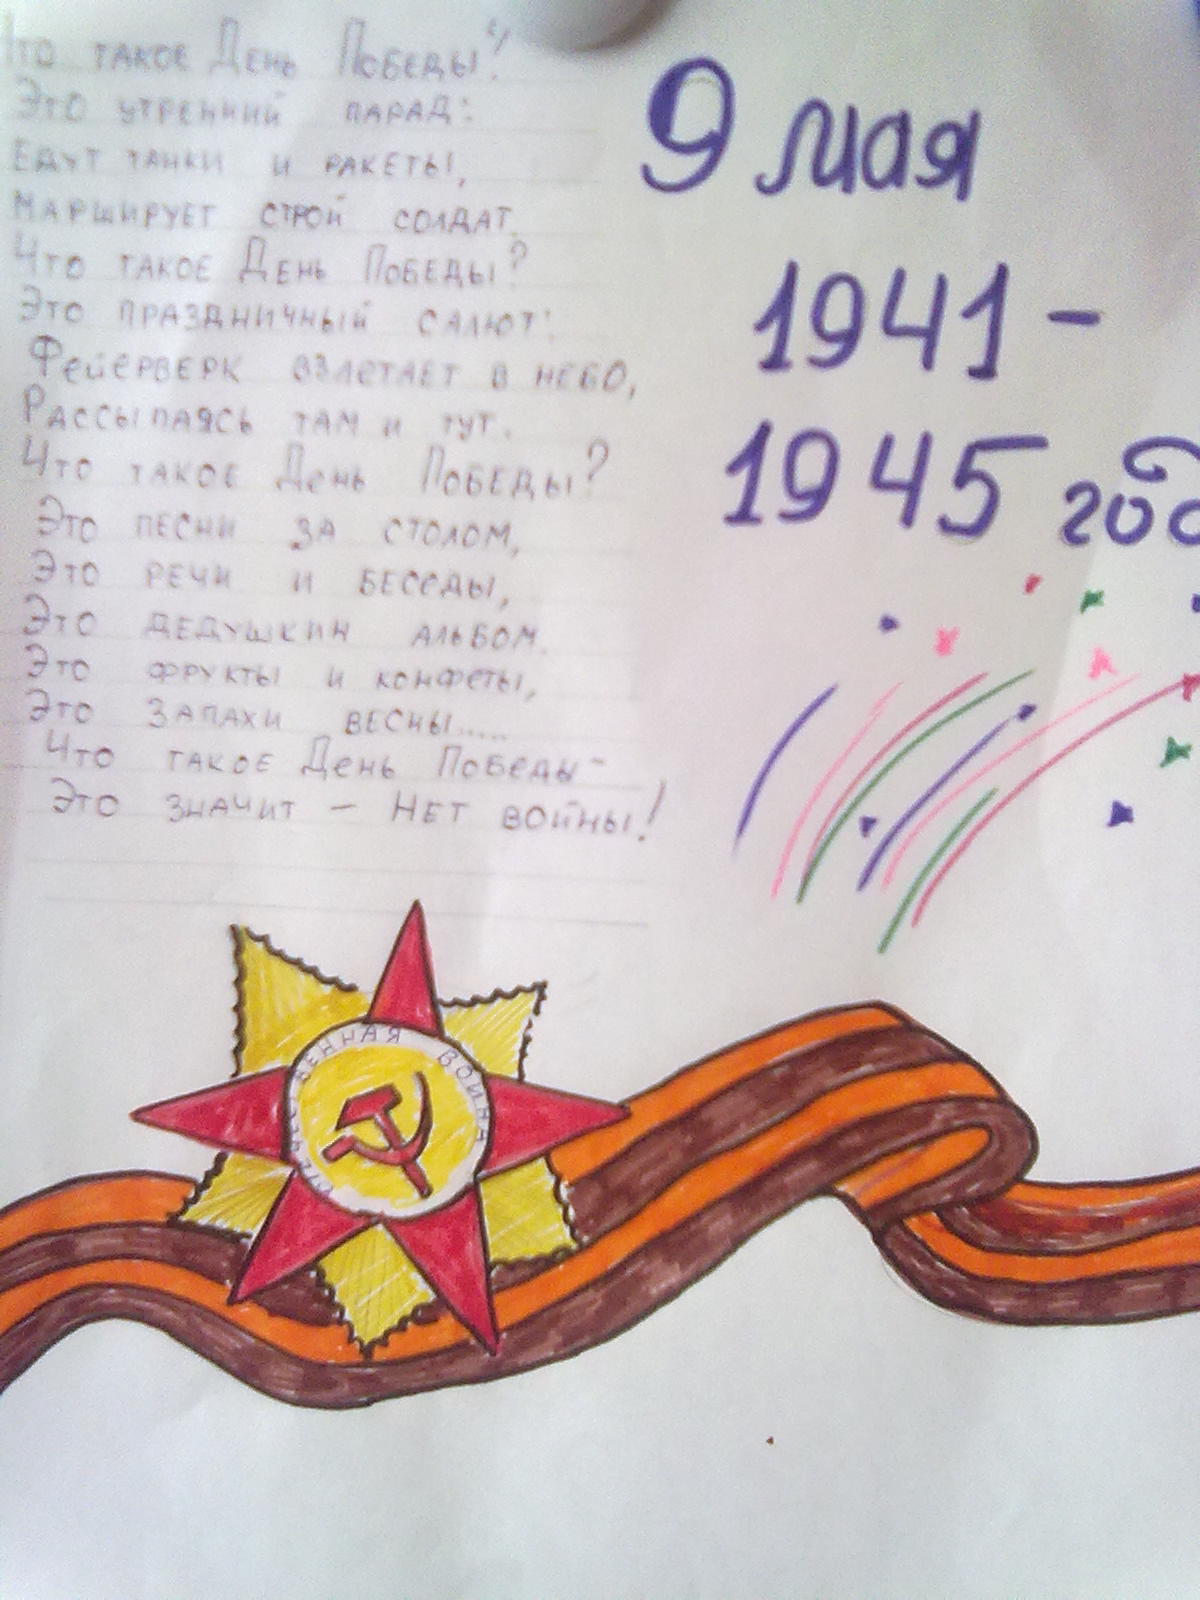 Что такое День Победы?
Это утренний парад:
Едут танки и ракеты,
Марширует строй солдат.
Что такое День Победы?
Это праздничный салют:
Фейерверк взлетает в небо,
Рассыпаясь там и тут.
Что такое День Победы?
Это песни за столом,
Это речи и беседы,
Это дедушкин альбом.
Это фрукты и конфеты,
Это запахи весны.....
Что такое День Победы-
Это значит - Нет войны!
9 мая
1941-
1945 год
ОТЕЧЕСТВЕННАЯ ВОЙНА